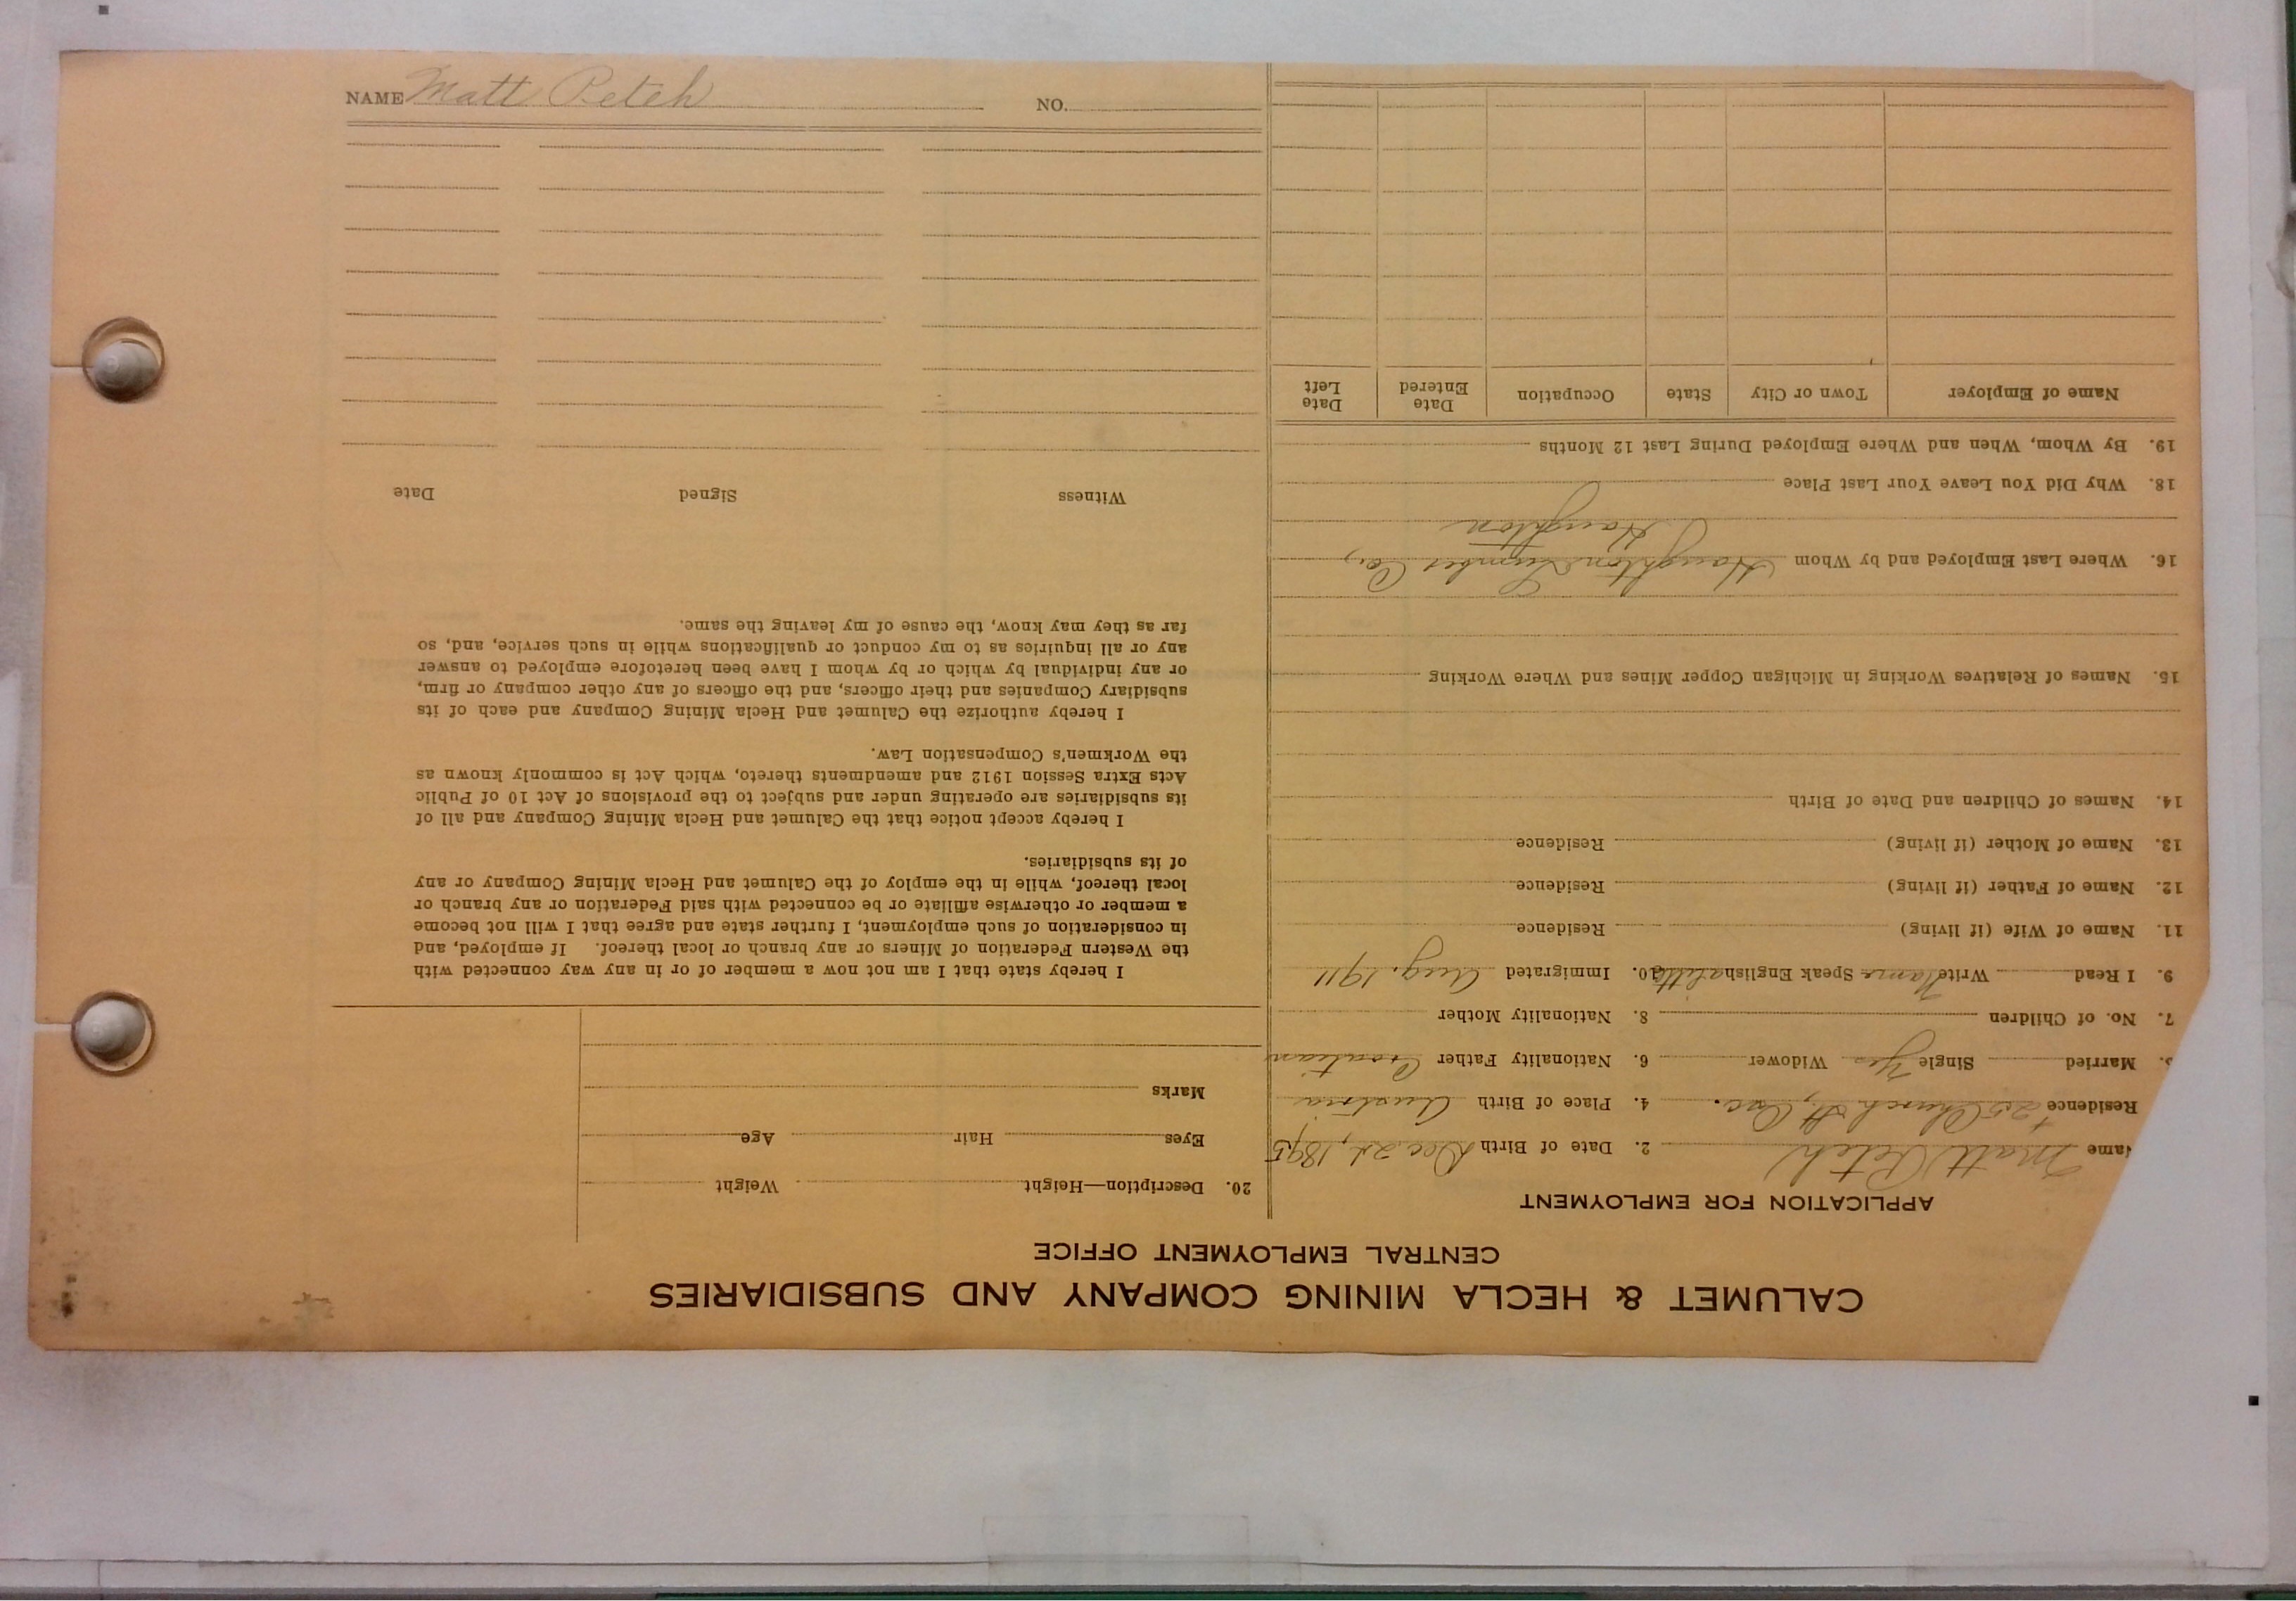 CALUMET & HECLA MINING COMPANY AND SUBSIDIARIES
CENTRAL EMPLOYMENT OFFICE
APPLICATION FOR EMPLOYMENT
Name Matt Petch 2. Date of Birth Dec 24, 1895
Residence Church St, 4. Place of Birth Austria
5. Married Single Yes Widower 6. Nationality Father Croatian
7. No. of Children 8. Nationality Mother
9. I Read Write Speak English a little 10. Immigrated Aug. 1911
11. Name of Wife (if living) Residence
12. Name of Father (if living) Residence
13. Name of Mother (if living) Residence
14. Names of Children and Date of Birth
15. Names of Relatives Working in Michigan Copper Mines and Where Working
16. Where Last Employed and by Whom Houghton Lumber Co.,
Houghton
18. Why Did You Leave Your Last Place
19. By Whom, When and Where Employed During Last 12 Months
Name of Employer Town or City State Occupation Date Entered Date Left
20. Description—Height Weight
Eyes Hair Age
Marks
I hereby state that I am not now a member of or in any way connected with
the Western Federation of Miners or any branch or local thereof. If employed, and
in consideration of such employment, I further state and agree that I will not become
a member or otherwise affiliate or be connected with said Federation or any branch or
local thereof, while in the employ of the Calumet and Hecla Mining Company or any
of its subsidiaries.
I hereby accept notice that the Calumet and Hecla Mining Company and all of
its subsidiaries are operating under and subject to the provisions of Act 10 of Public
Acts Extra Session 1912 and amendments thereto, which Act is commonly known as
the Workmen's Compensation Law.
I hereby authorize the Calumet and Hecla Mining Company and each of its
subsidiary Companies and their officers, and the officers of any other company or firm,
or any individual by which or by whom I have been heretofore employed to answer
any or all inquiries as to my conduct or qualifications while in such service, and, so
far as they may know, the cause of my leaving the same.
Witness Signed Date
NAME Matt Petch NO.